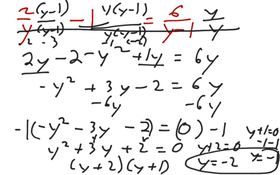 2/y (y-1)/(y-1) - 1 y(y-1)/y(y-1) = 6/y-1 y/y
2y - 2 - y² + 1y = 6y
-y² + 3y - 2 = 6y
-6y -6y
-1(-y² - 3y - 2) = (0) - 1
y² + 3y + 2 = 0
(y + 2)(y + 1)
y+2=0
y=-2
y+1=0
-1 -1
y=-1